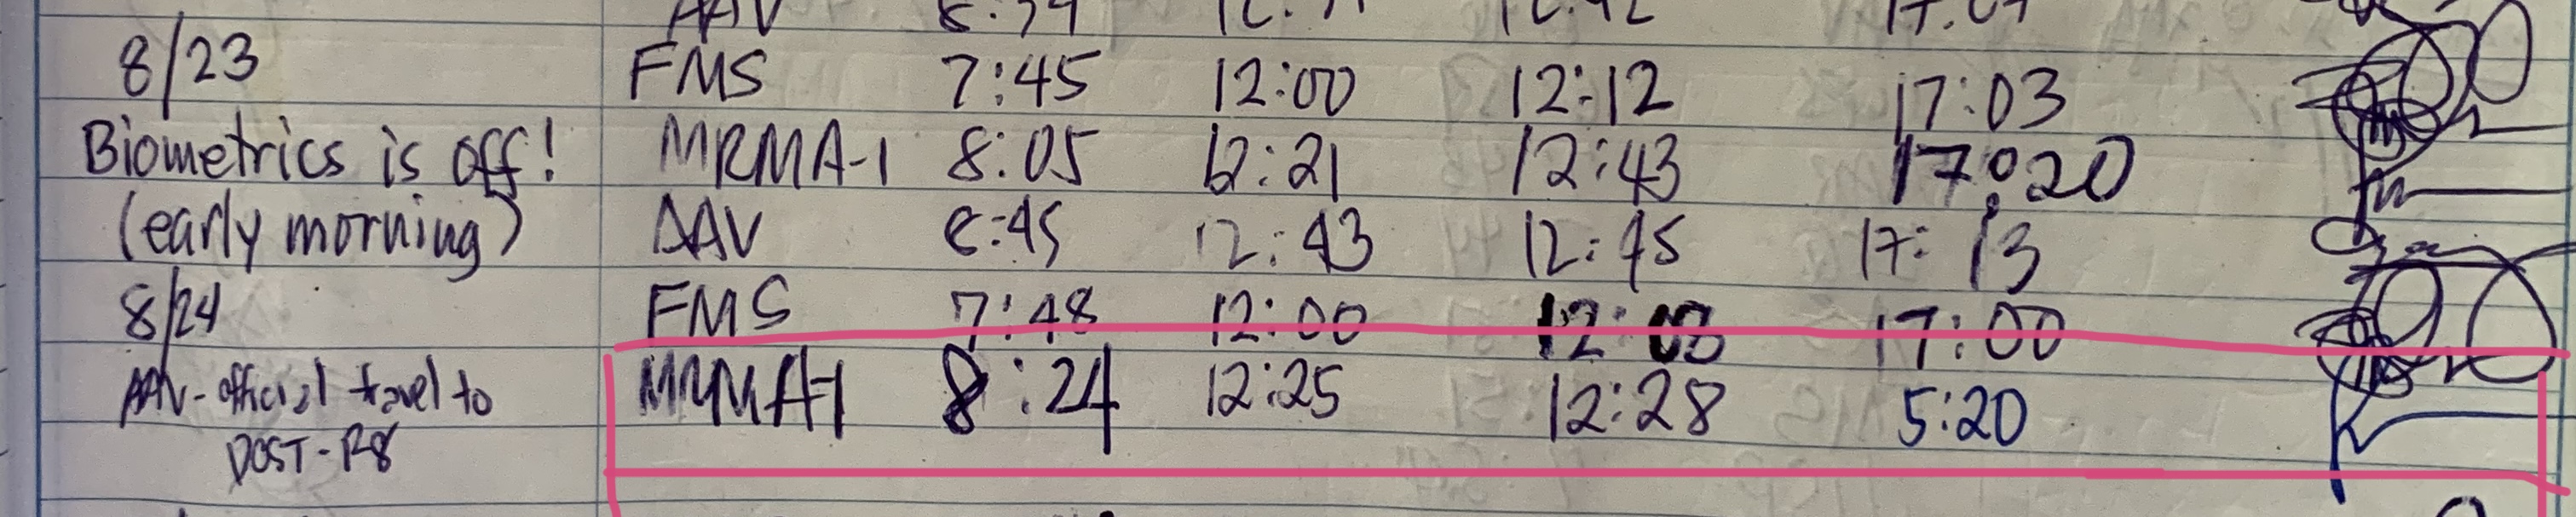 8/23 FMS 7:45 12:00 12:12 17:03
Biometrics is off! MRMA-1 8:05 12:21 12:43 17:20
(early morning) AAV 8:45 12:43 12:45 17:13
8/24 FMS 7:48 12:00 12:03 17:00
AAV-official travel to MRMA-1 8:24 12:25 12:28 5:20
DOST-R8